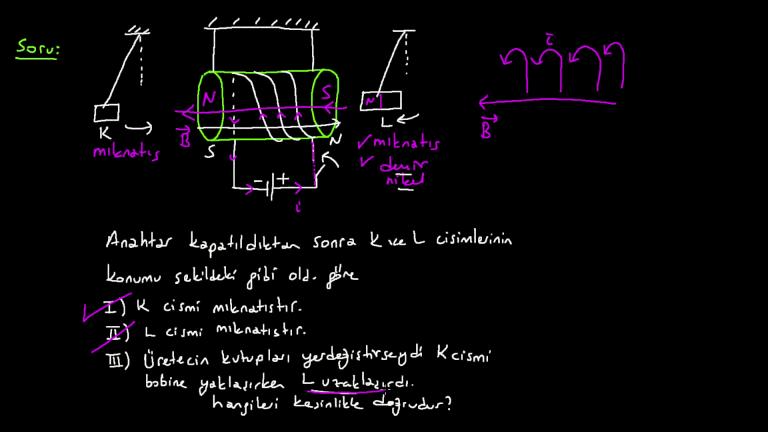 Soru:
N
S
S
N
B
K
mıknatıs
N
L
✓ mıknatıs
✓ demir
nikel
- +
i
i
B
Anahtar kapatıldıktan sonra K ve L cisimlerinin
konumu şekildeki gibi old. göre
I) K cismi mıknatıstır.
II) L cismi mıknatıstır.
III) Üretecin kutupları yerdeğiştirseydi K cismi
bobine yaklaşırken L uzaklaşırdı.
hangileri kesinlikle doğrudur?